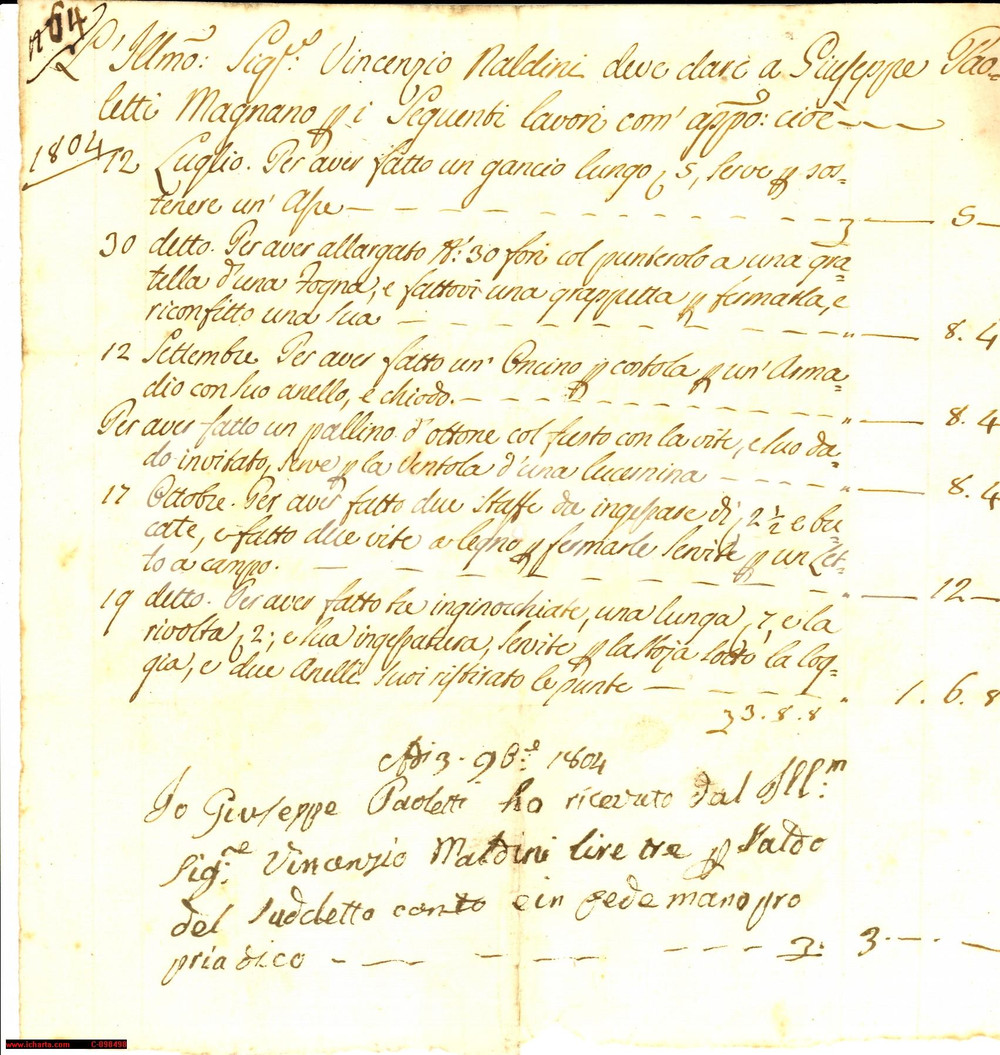 N 64
L' Illmo: Sigre: Vincenzio Naldini deve dare a Giuseppe Pao-
letti Magnano p i Seguenti lavori com' appo: cioè
1804
12 Luglio. Per aver fatto un gancio lungo 5, serve p sos-
tenere un' Aste 5
30 detto. Per aver allargato No: 30 fori col punterolo a una gra-
tella d'una Fogna, e fattovi una grappetta p fermarla, e
riconfitto una sua " 8. 4
12 Settembre Per aver fatto un' Oncino p costola p un' Arma-
dio con suo anello, e chiodo. " 8. 4
Per aver fatto un pallino d'ottone col fusto con la vite, e suo da-
do invitato, serve p la Ventola d'una lucernina " 8. 4
17 Ottobre. Per aver fatto due Staffe da ingessare di 2 1/2 e bu-
cate, e fatto due vite a legno p fermarle servite p un Let-
to a campo. " 12
19 detto. Per aver fatto tre inginocchiate, una lunga 7, e la
rivolta 2; e sua ingessatura, servite p la Stoja sotto la log-
gia, e due Anelli suoi ristirato le punte " 1. 6. 8
3. 8. 8
Adi 3 - 9Bre 1804
Io Giuseppe Paoletti ho ricevuto dal Illm:
Sigre: Vincenzio Naldini lire tre p Saldo
del Suddetto conto e in fede mano pro
pria dico 3
www.icharta.com C-098490